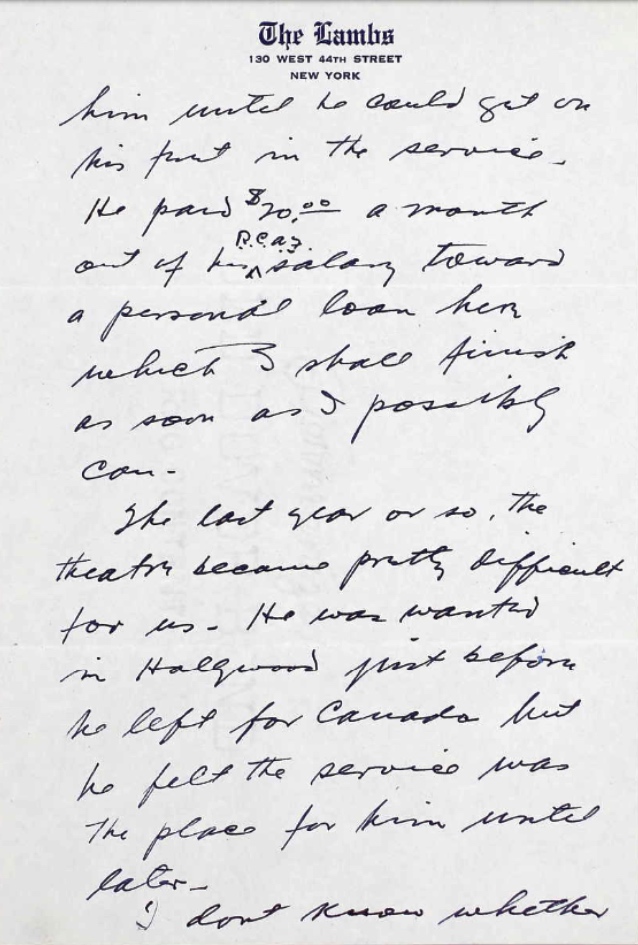 The Lambs
130 WEST 44TH STREET
NEW YORK
him until he could get on
his feet in the service.
He paid $20.00 a month
R.C.A.F.
out of his ^ salary toward
a personal loan here
which I shall finish
as soon as I possibly
can -
The last year or so, the
theatre became pretty difficult
for us - He was wanted
in Hollywood just before
he left for Canada but
he felt the service was
the place for him until
later -
I dont know whether